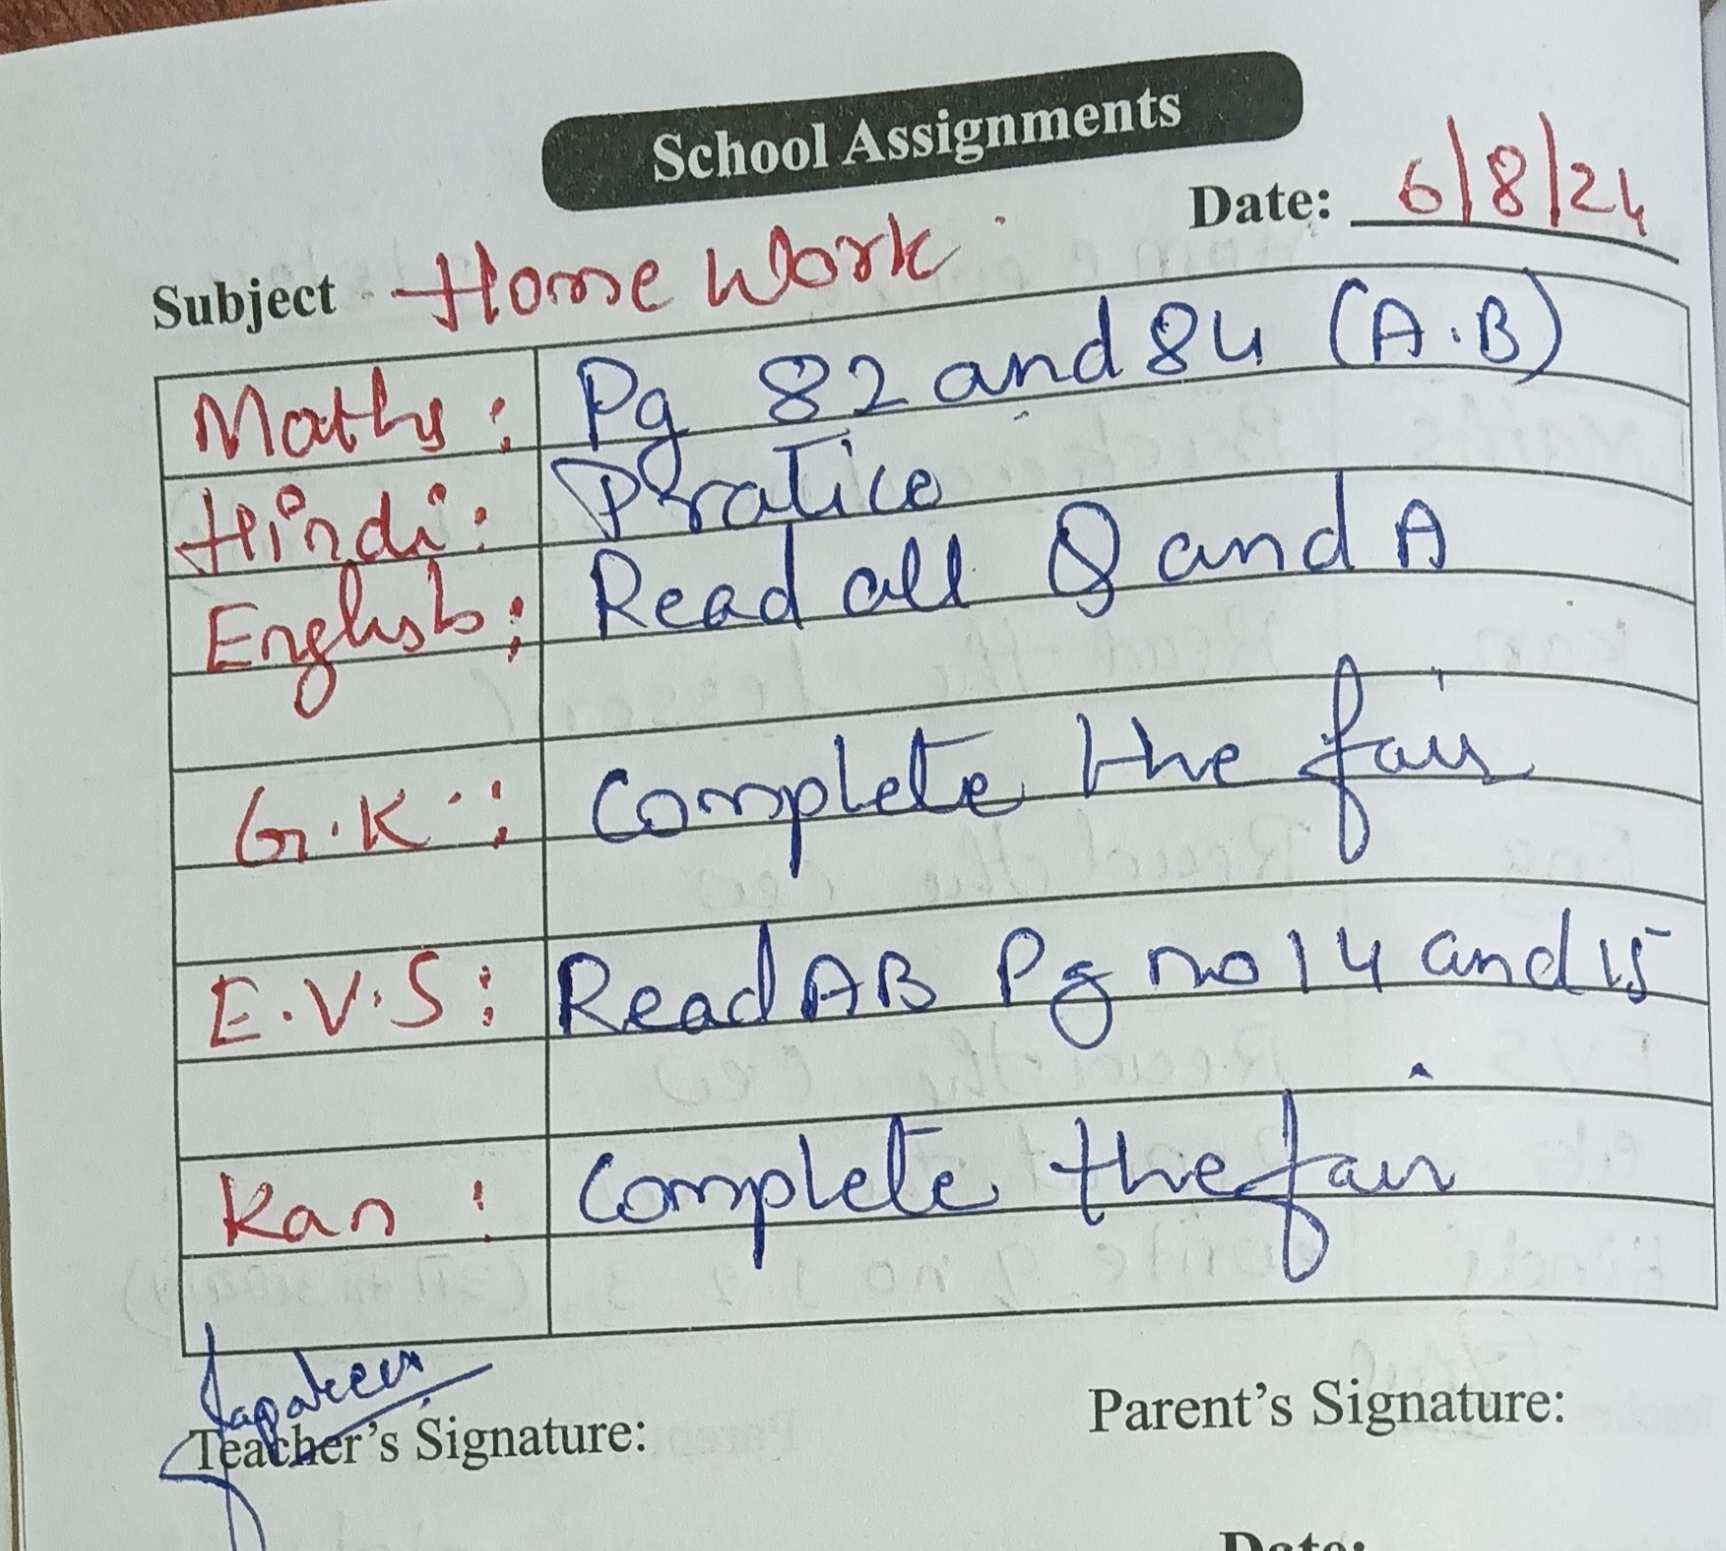 School Assignments
Date: 6/8/24
Subject Home Work
Maths: Pg 82 and 84 (A.B)
Hindi: Pratice
English: Read all Q and A
G.K: Complete the fair
E.V.S: Read AB Pg no 14 and 15
Kan: Complete the fair
Teacher's Signature:
Parent's Signature:
Date: